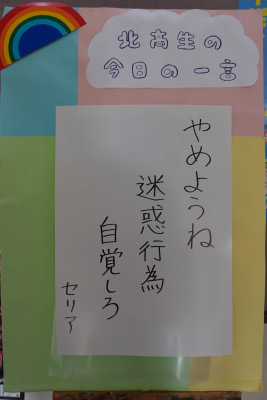 北高生の
今日の一言
やめようね
迷惑行為
自覚しろ
セリア